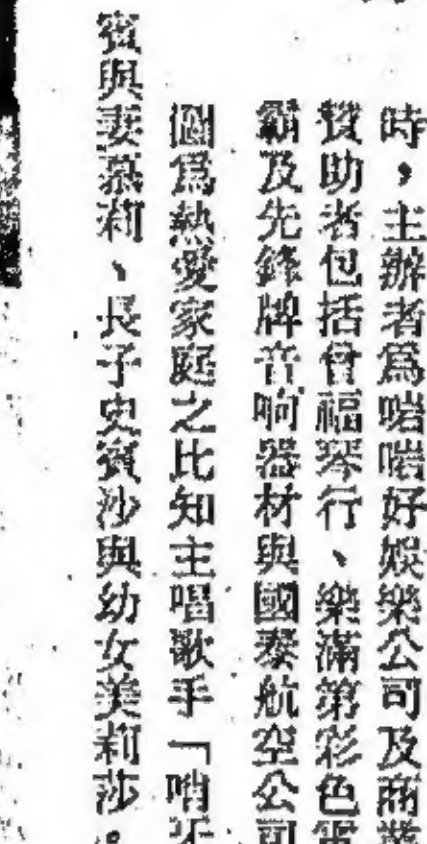 時，主辦者爲啱啱好娛樂公司及商業
贊助者包括曾福琴行、樂滿第彩色電
顧及先鋒牌音响器材與國泰航空公司
圖爲熱愛家庭之比知主唱歌手「哨牙
賓與妻慕莉、長子史賓沙與幼女美莉莎。